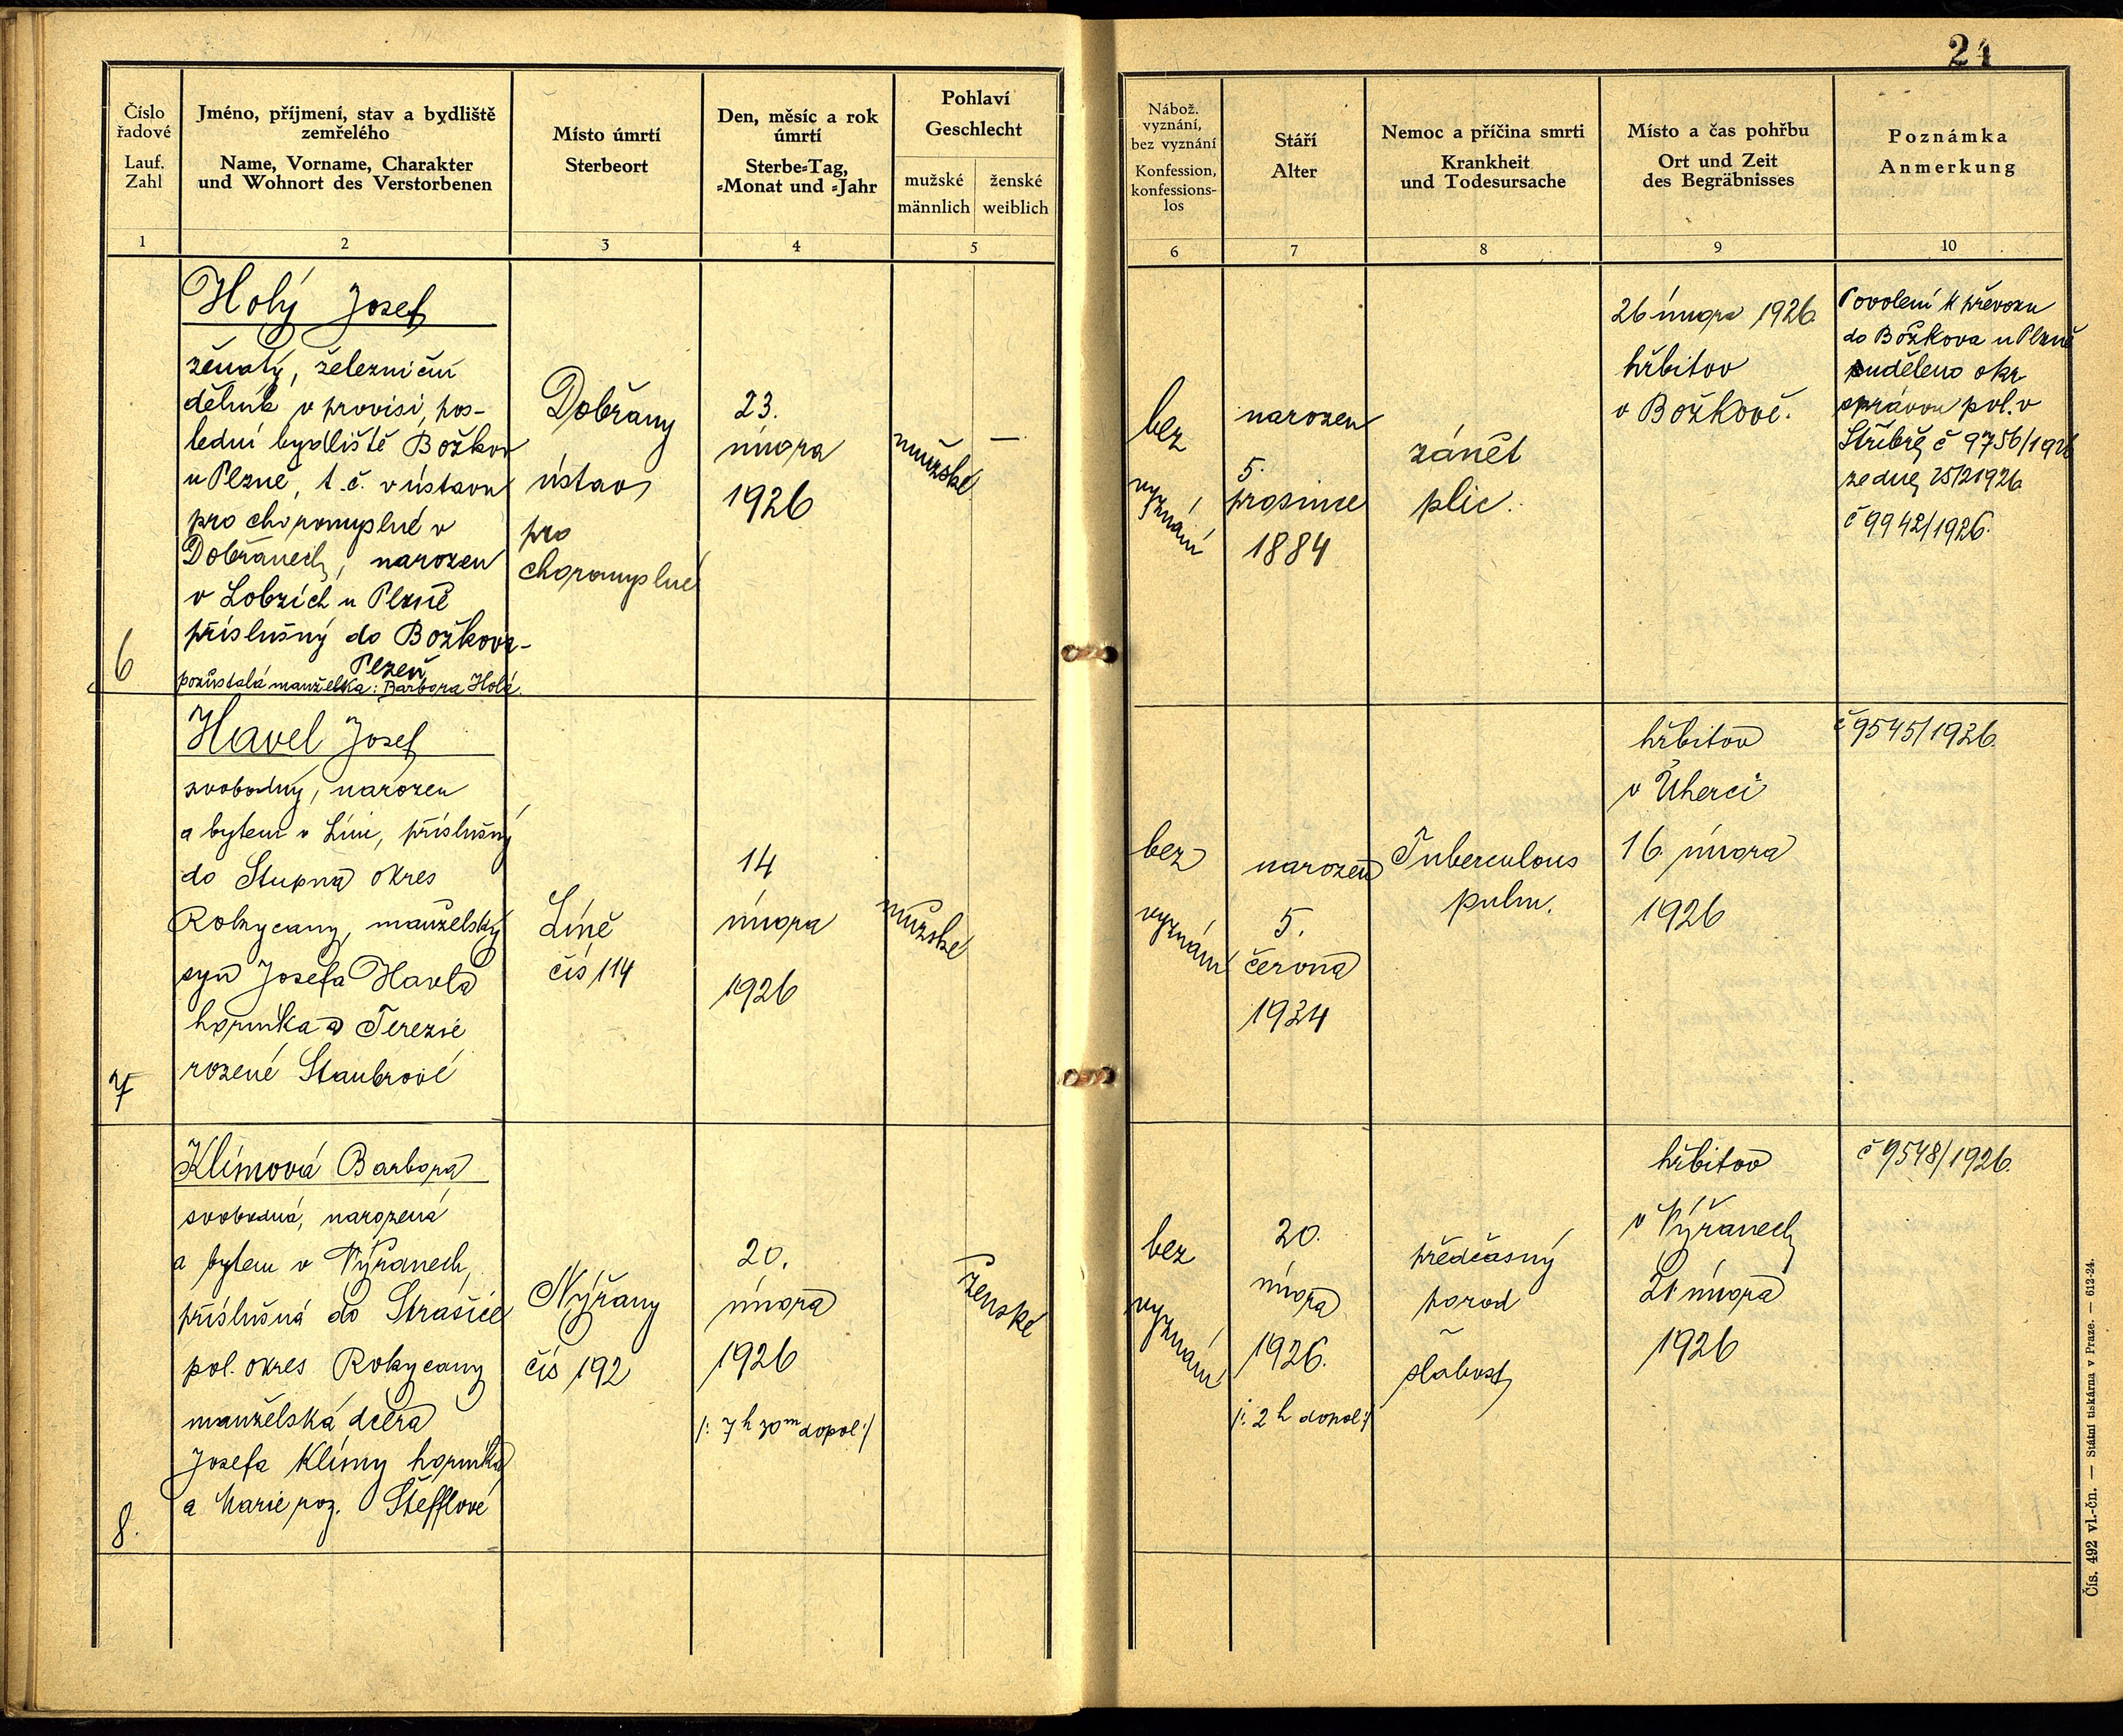 24
Číslo
řadové
Lauf.
Zahl
1
Jméno, příjmení, stav a bydliště
zemřelého
Name, Vorname, Charakter
und Wohnort des Verstorbenen
2
Místo úmrtí
Sterbeort
3
Den, měsíc a rok
úmrtí
Sterbe-Tag,
-Monat und -Jahr
4
Pohlaví
Geschlecht
mužské
männlich
ženské
weiblich
5
Nábož.
vyznání,
bez vyznání
Konfession,
konfessions-
los
6
Stáří
Alter
7
Nemoc a příčina smrti
Krankheit
und Todesursache
8
Místo a čas pohřbu
Ort und Zeit
des Begräbnisses
9
Poznámka
Anmerkung
10
6
Holý Josef
ženatý, železniční
dělník v provisi, pos-
lední bydliště Božkov
u Plzně, t.č. v ústavu
pro choromyslné v
Dobřanech, narozen
v Lobzích u Plzně
příslušný do Božkova-
Plzeň
pozůstalá manželka: Barbora Holá.
Dobřany
ústav
pro
choromyslné
23.
února
1926
mužské
—
bez
vyznání
narozen
5.
prosince
1884
zánět
plic.
26 února 1926.
hřbitov
v Božkově.
Povolení k převozu
do Božkova u Plzně
uděleno okr.
správou pol. v
Stříbře, č 9756/1926
ze dne, 25/2 1926
č 9942/1926.
7
Havel Josef
svobodný, narozen
a bytem v Líni, příslušný
do Stupna okres
Rokycany, manželský
syn Josefa Havla
horníka a Terezie
rozené Staubrové
Líně
čís 114
14
února
1926
mužské
bez
vyznání
narozen
5.
června
1924
Tuberculous
pulm.
hřbitov
v Úherci
16. února
1926
č 9545/1926.
8.
Klímová Barbora
svobodná, narozená
a bytem v Nýřanech,
příslušná do Strašic
pol. okres Rokycany
manželská dcera
Josefa Klímy horníka
a Marie roz. Štefflové
Nýřany
čís 192
20.
února
1926
/: 7 h 30 m dopol :/
ženské
bez
vyznání
20.
února
1926.
/: 2 h dopol :/
předčasný
porod
slabost
hřbitov
v Nýřanech
21 února
1926
č 9548/1926.
Čís. 492 vl.-čn. — Státní tiskárna v Praze. — 612-24.